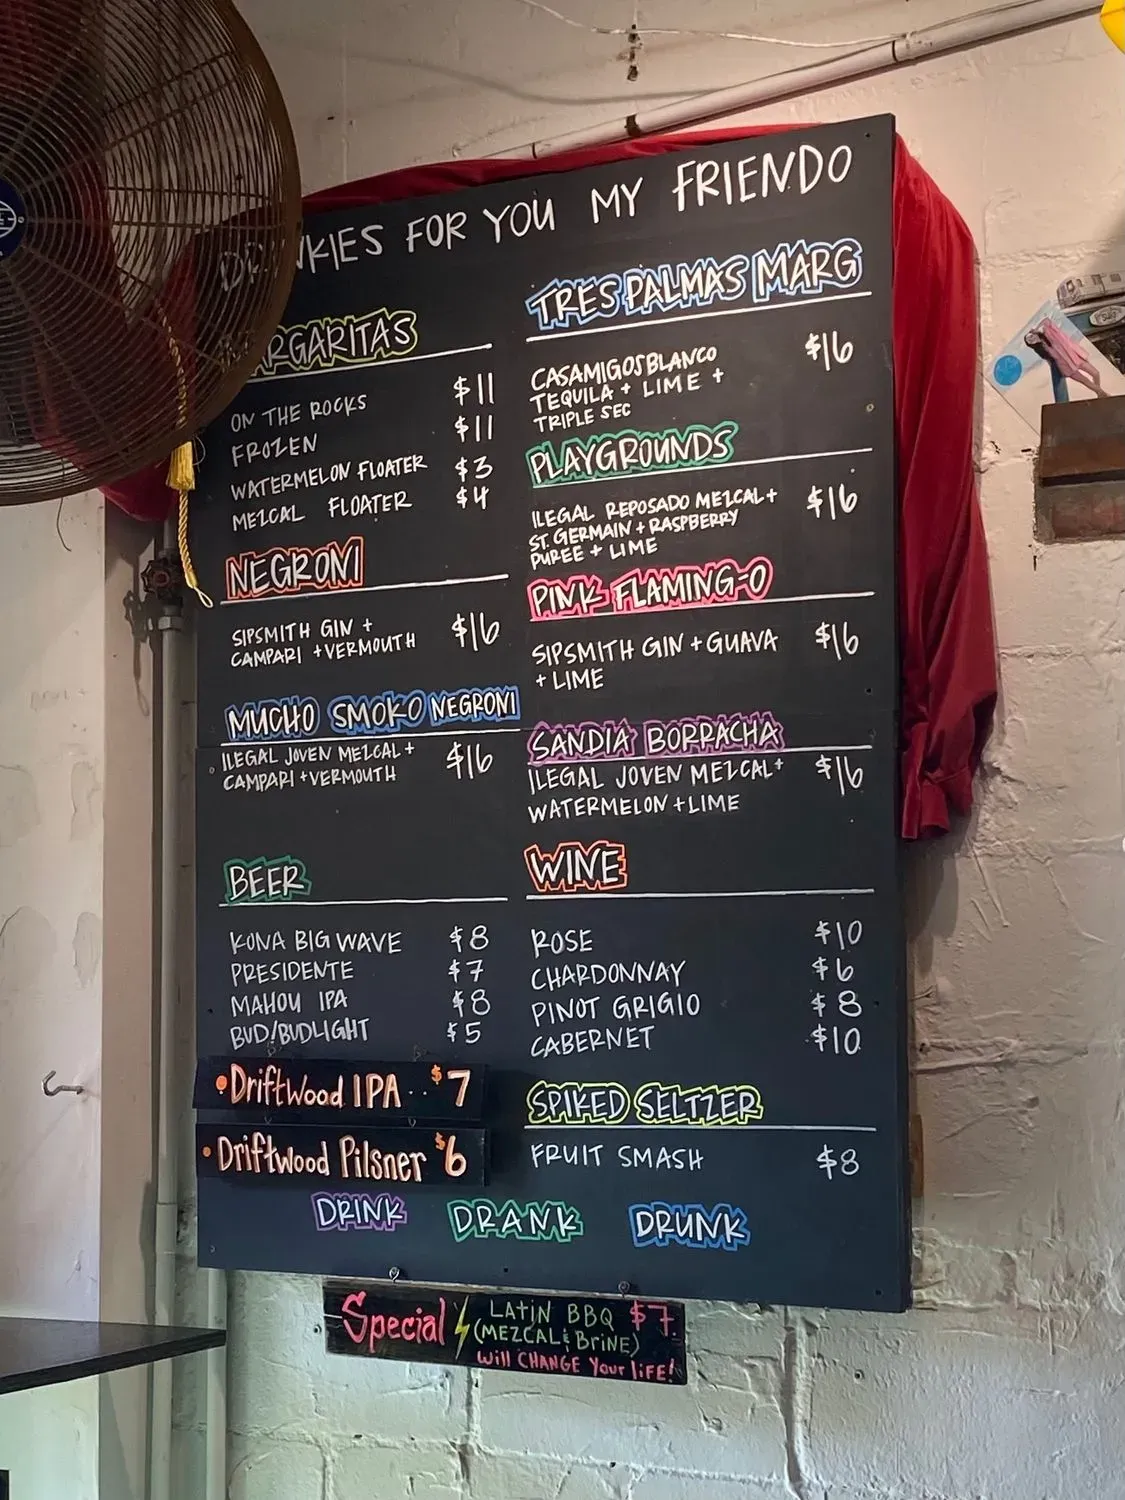 DRINKIES FOR YOU MY FRIENDO
MARGARITAS
ON THE ROCKS $11
FROZEN $11
WATERMELON FLOATER $3
MEZCAL FLOATER $4
NEGRONI
SIPSMITH GIN + $16
CAMPARI + VERMOUTH
MUCHO SMOKO NEGRONI
ILEGAL JOVEN MEZCAL + $16
CAMPARI + VERMOUTH
BEER
KONA BIG WAVE $8
PRESIDENTE $7
MAHOU IPA $8
BUD/BUDLIGHT $5
• Driftwood IPA .. $7
• Driftwood Pilsner $6
TRES PALMAS MARG
CASAMIGOS BLANCO $16
TEQUILA + LIME +
TRIPLE SEC
PLAYGROUNDS
ILEGAL REPOSADO MEZCAL + $16
ST. GERMAIN + RASPBERRY
PUREE + LIME
PINK FLAMING-O
SIPSMITH GIN + GUAVA $16
+ LIME
SANDIA BORRACHA
ILEGAL JOVEN MEZCAL + $16
WATERMELON + LIME
WINE
ROSE $10
CHARDONNAY $6
PINOT GRIGIO $8
CABERNET $10
SPIKED SELTZER
FRUIT SMASH $8
DRINK DRANK DRUNK
Special LATIN BBQ $7.
(MEZCAL & BRINE)
Will CHANGE Your LIFE!